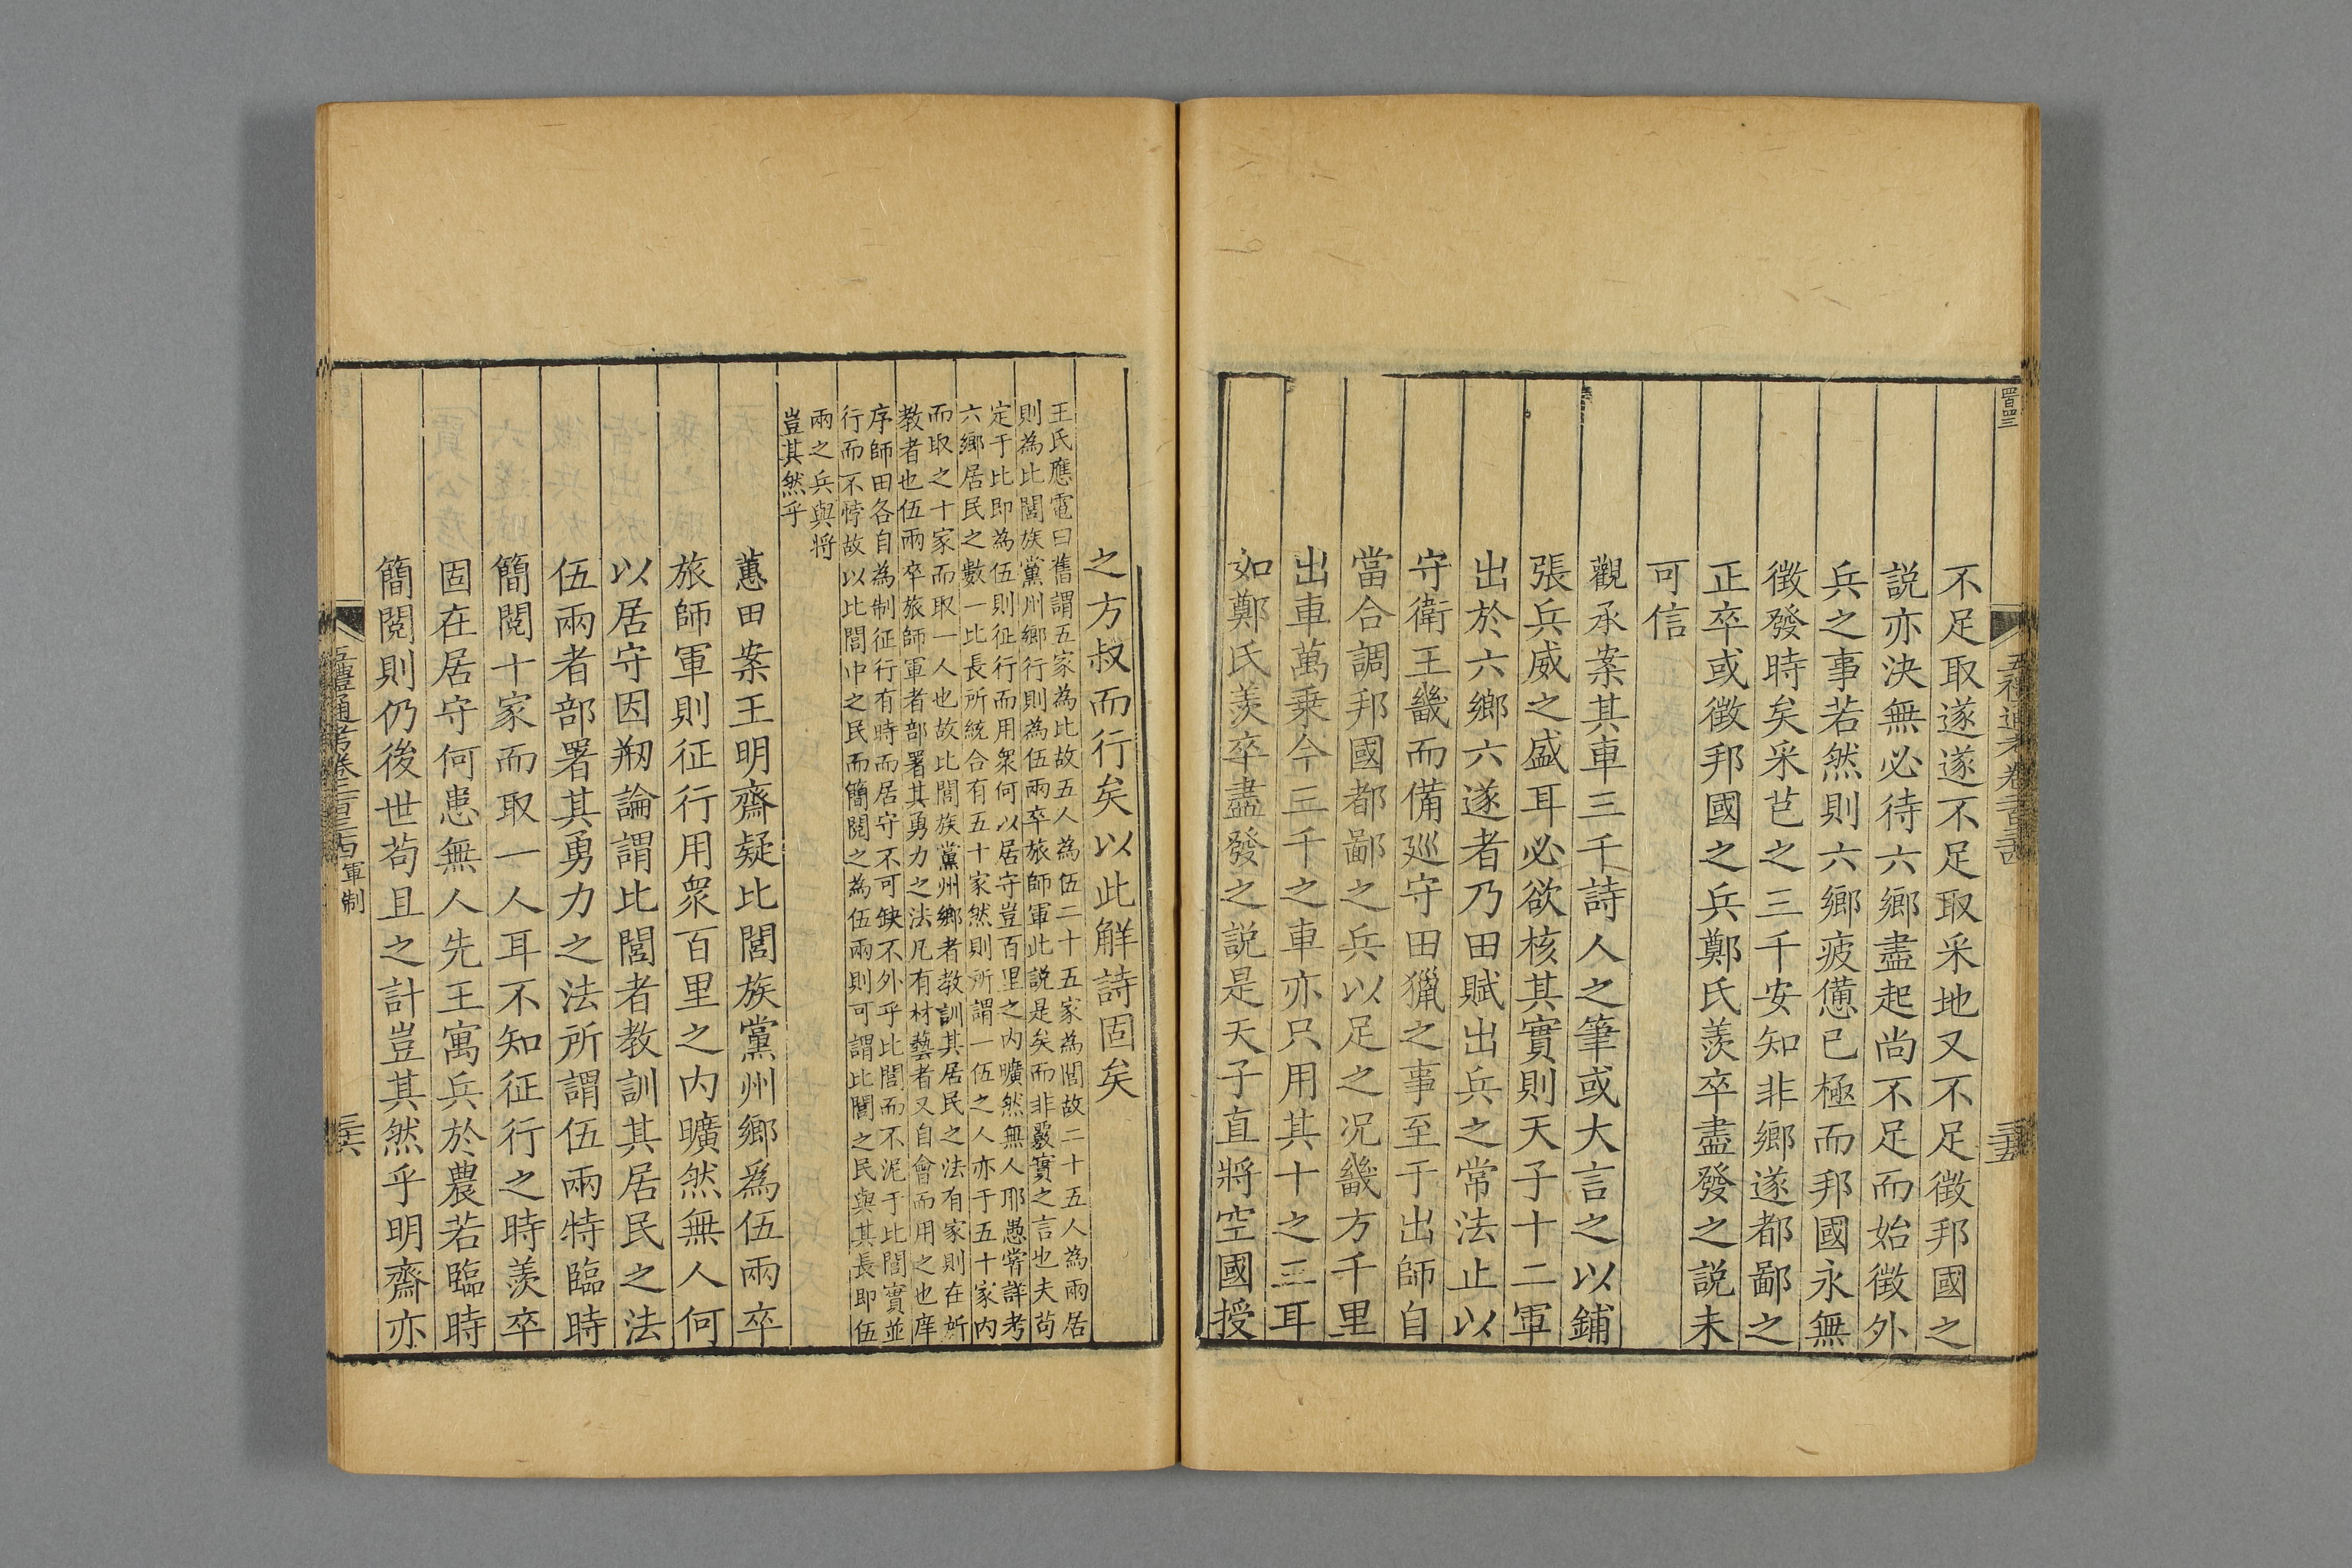 不足取遂遂不足取采地又不足徵邦國之
説亦決無必待六鄉盡起尚不足而始徵外
兵之事若然則六鄉疲憊已極而邦國永無
徴發時矣采芑之三千安知非鄉遂都鄙之
正卒或徴邦國之兵鄭氏羨卒盡發之説未
可信
觀承案其車三千詩人之筆或大言之以鋪
張兵威之盛耳必欲核其實則天子十二軍
出於六鄉六遂者乃田賦出兵之常法止以
守衛王畿而備廵守田獵之事至于出師自
當合調邦國都鄙之兵以足之況畿方千里
出車萬乗今三千之車亦只用其十之三耳
如鄭氏羨卒盡發之説是天子直將空國授
之方叔而行矣以此解詩固矣
王氏應電曰舊謂五家為比故五人為伍二十五家為閭故二十五人為兩居
則為比閭族黨州鄉行則為伍兩卒旅師軍此説是矣而非覈實之言也夫茍
定于比即為伍則征行而用衆何以居守豈百里之内曠然無人耶愚嘗詳考
六鄉居民之數一比長所統合有五十家然則所謂一伍之人亦于五十家内
而取之十家而取一人也故比閭族黨州鄉者教訓其居民之法有家則在所
教者也伍兩卒旅師軍者部署其勇力之法凡有材藝者又自會而用之也庠
序師田各自為制征行有時而居守不可缺不外乎比閭而不泥于比閭實並
行而不悖故以比閭中之民而簡閱之為伍兩則可謂比閭之民與其長即伍
兩之兵與將
豈其然乎
蕙田案王明齋疑比閭族黨州鄉爲伍兩卒
旅師軍則征行用衆百里之内曠然無人何
以居守因剏論謂比閭者教訓其居民之法
伍兩者部署其勇力之法所謂伍兩特臨時
簡閲十家而取一人耳不知征行之時羨卒
固在居守何患無人先王寓兵於農若臨時
簡閲則仍後世茍且之計豈其然乎明齋亦
五禮通考卷二百三十四 軍制